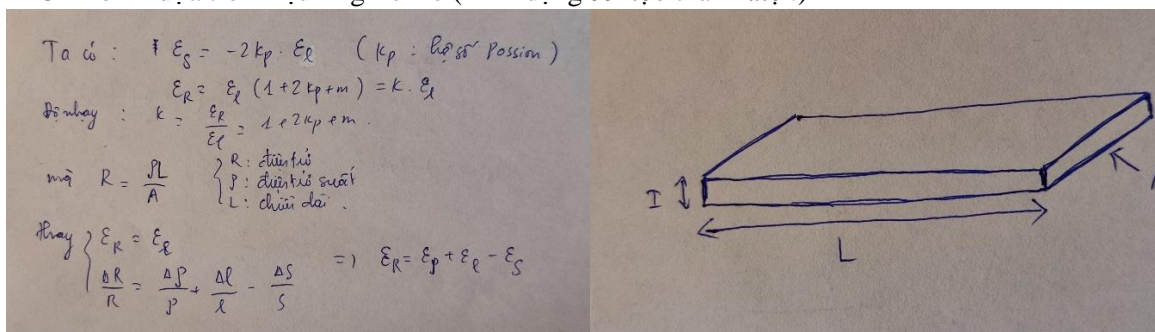 Ta có : ε_S = -2kp . ε_l ( kp : hệ số Possion )
ε_R = ε_l (1+2kp+m) = k . ε_l
Độ nhạy : k = ε_R/ε_l = 1+2kp+m .
mà R = ρL/A { R : điện trở
ρ : điện trở suất
L : chiều dài .
Hay { ε_R = ε_l
ΔR/R = Δρ/ρ + Δl/l - ΔS/S
=> ε_R = ε_ρ + ε_l - ε_S
I
L